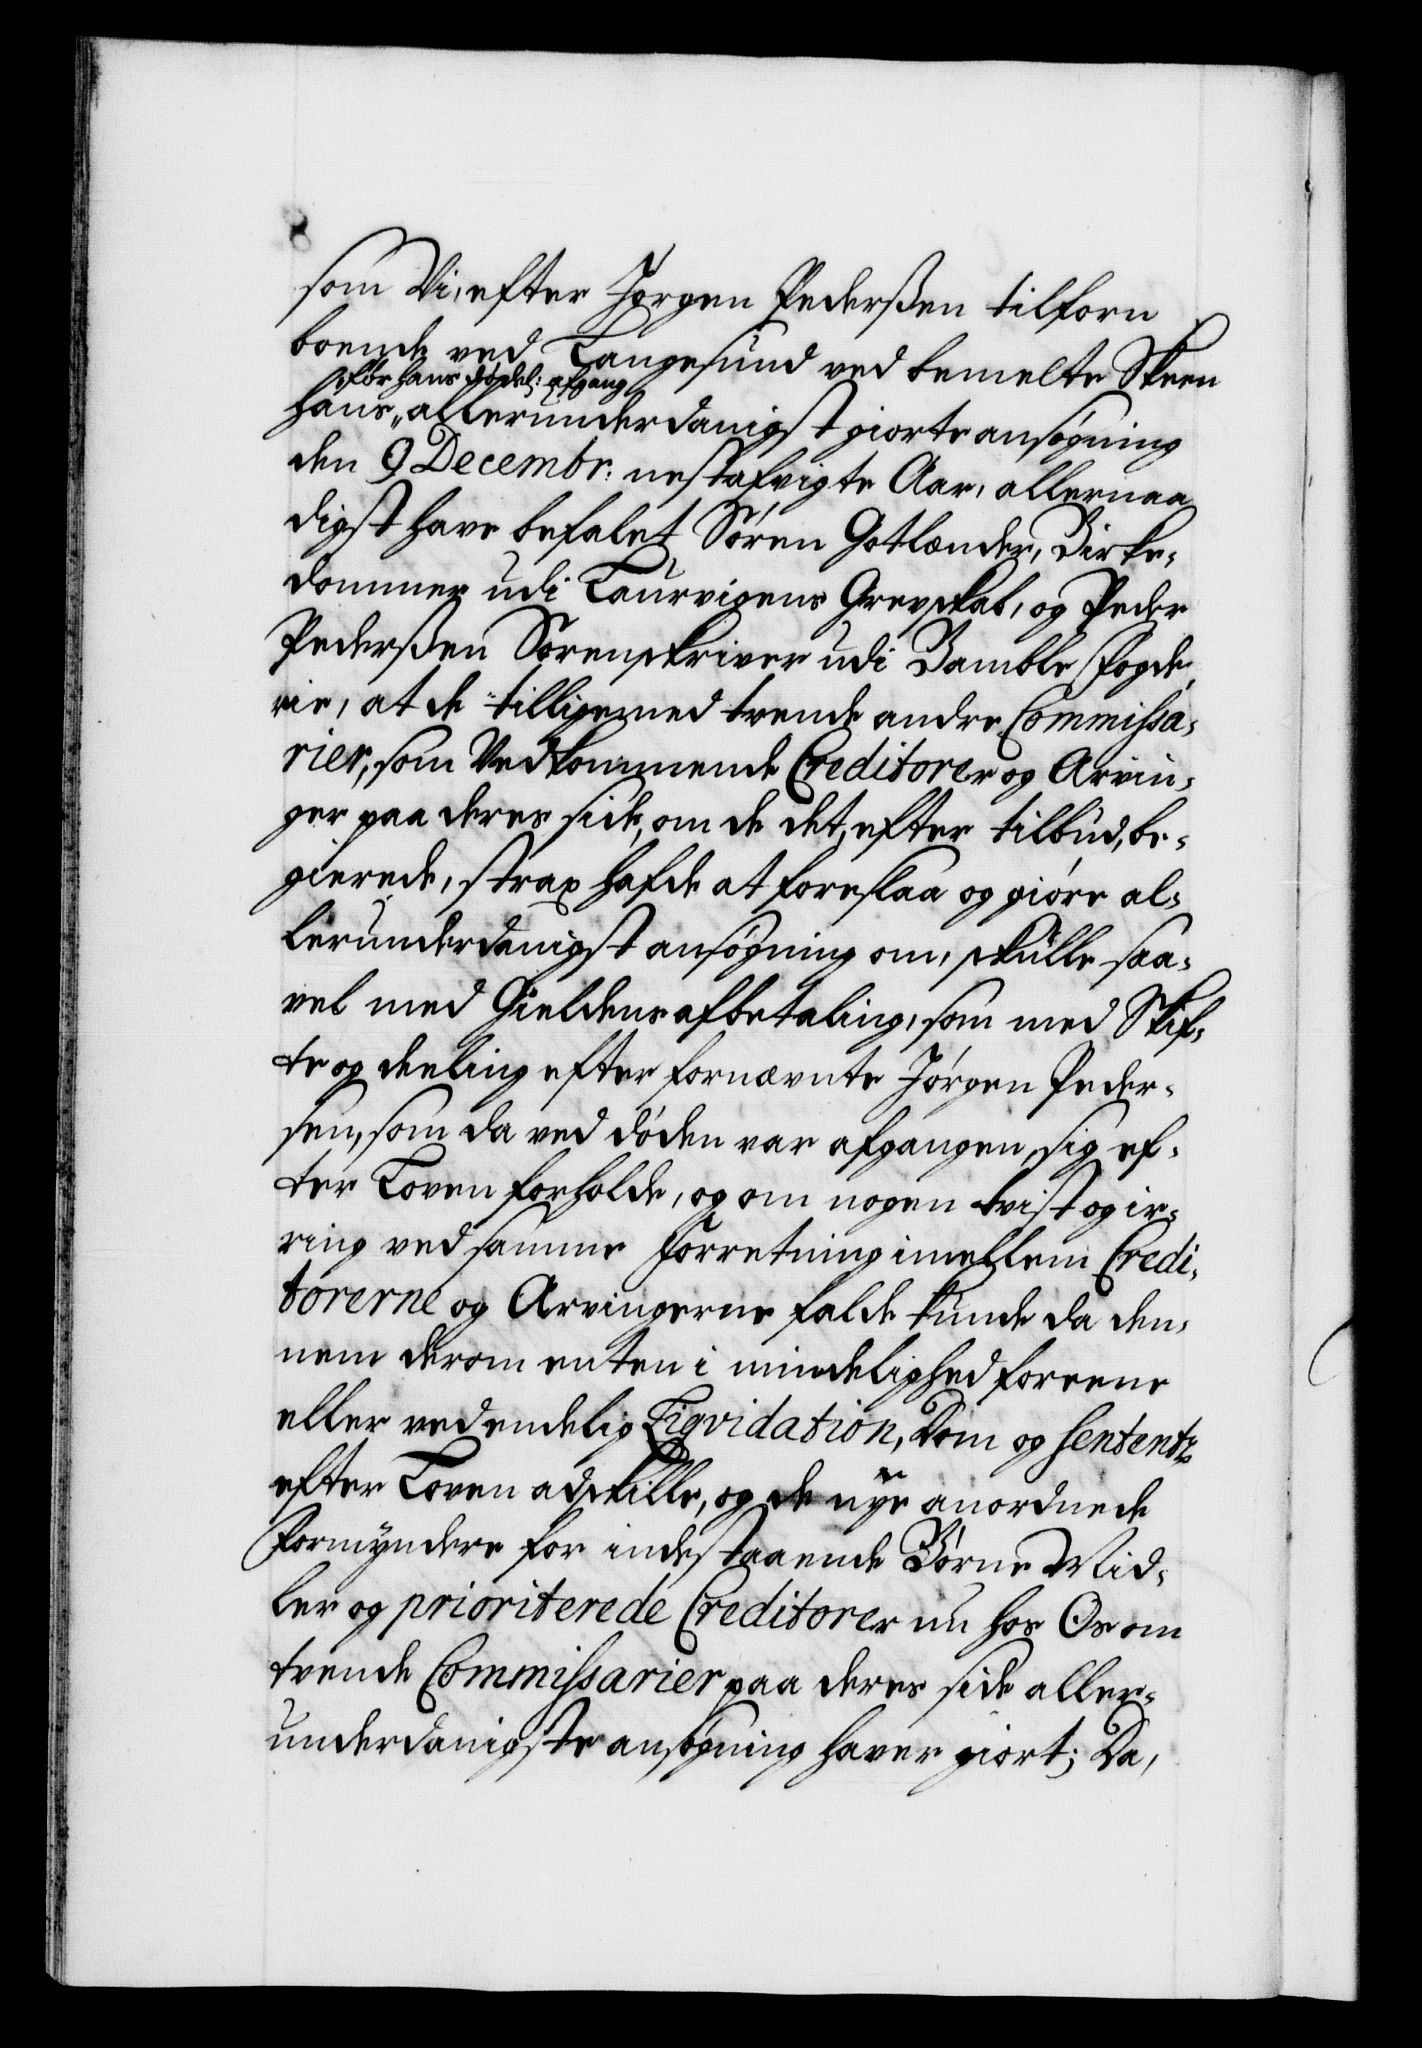 som Vi, efter Jørgen Pederßen tilforn
boende ved Langesund ved bemelte Skeen
for hans dødel: afgang
hans „ allerunderdanigst giorte ansøgning
den 9 Decembr: nestafvigte Aar, allernaa
digst have befalet Søren Gotlænder, Birke-
dommer udi Laurvigens Grevskab, og Peder
Pederßen Sorenskriver udi Bamble Fogde
rie, at de tilligemed tvende andre Commissa-
rier, som Vedkommende Creditorer og Arvin-
ger paa deres side, om de det, efter tilbud, be-
gierede, strax hafde at foreslaa og giøre al-
lerunderdanigst ansøgning om, skulle saa-
vel med Gieldens afbetaling, som med Skif-
te og deeling efter fornævnte Jørgen Peder-
sen, som da ved døden var afgangen, sig ef-
ter Loven forholde, og om nogen tvist og ir-
ring ved samme Forretning imellem Credi-
torerne og Arvingerne falde kunde da den-
nem derom enten i mindelighed foreene
eller ved endelig Liqvidation, Dom og sententz
efter Loven adskille, og de nye anordnede
Formyndere for indestaaende Børne Mid-
ler og prioriterede Creditorer nu hos Os om
tvende Commissarier paa deres side aller-
underdanigste ansøgning haver giort; Da,